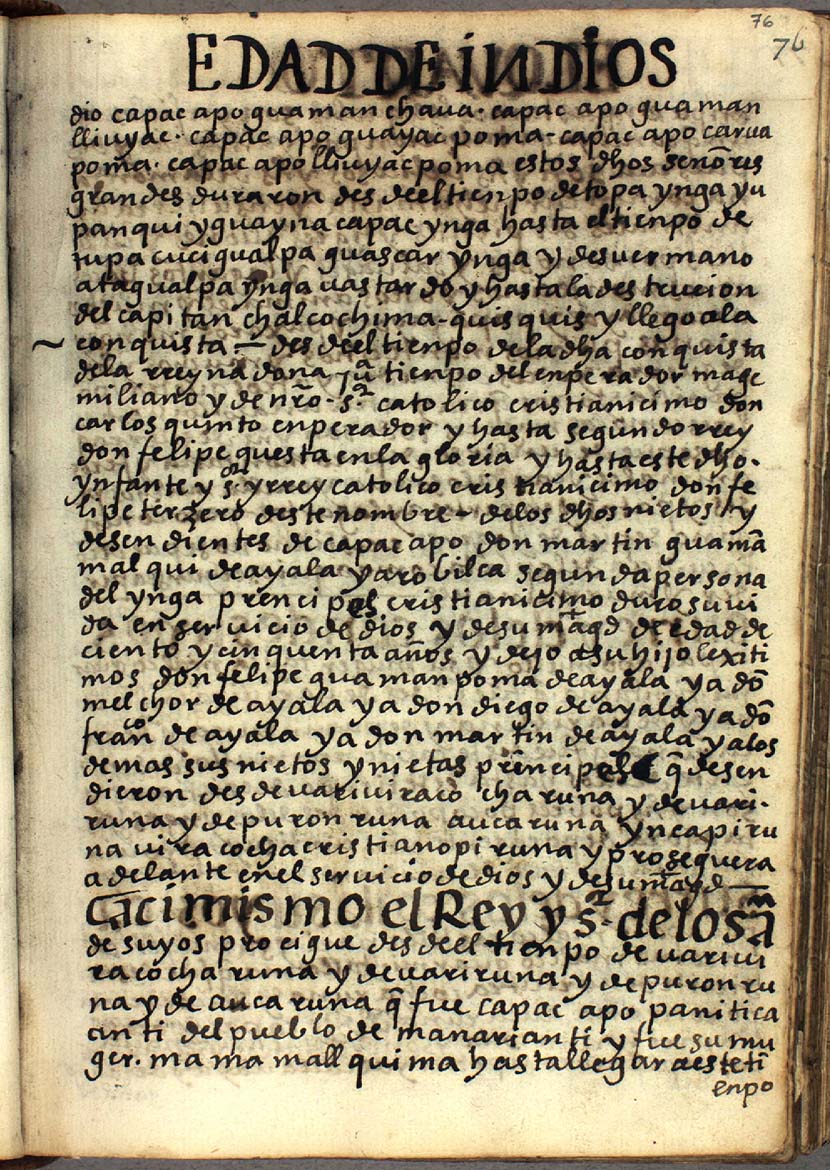 76
76
EDAD DE INDIOS
dio capac apo guaman chaua. capac apo guaman
lliuyac. capac apo guayac poma. capac apo carua
poma. capac apo lliuyac poma estos dhos señores
grandes duraron des deel tienpo de topa ynga yu
panqui y guayna capac ynga hasta el tienpo de
tupa cuci gualpa guascar ynga y de su ermano
atagualpa ynga uastardo y hasta la destrucion
del capitan chalcochima. quis quis y llego a la
conquista – des deel tienpo de la dha conquista
de la rreyna dona juª tienpo del enperador mage
miliano y de nr̃o. sr catolico cristianicimo don
carlos quinto enperador y hasta segundo rrey
don felipe questa en la gloria y hasta este dho.
ynfante y sr y rrey catolico cristianicimo don fe
lipe terzero deste nombre – de los dhos nietos y
desendientes de capac apo don martin guamã
malqui de ayala yarobilca segunda persona
del ynga prencipal cristianicimo duro su ui
da en seruicio de dios y de su magd de edad de
ciento y cinquenta años y dejo a su hijo lexiti
mos don felipe guaman poma de ayala y a dõ
melchor de ayala y a don diego de ayala y a dõ
fran de ayala y a don martin de ayala y a los
demas sus nietos y nietas prencipals q̃ desen
dieron des de uariuiracocha runa y de uari.
runa y de puron runa auca runa yncapi ru
na uiracocha cristiano pi runa y proseguera
adelante en el seruicio de dios y de su magd –
acimismo el Rey y sr. de los an
desuyos procigue des deel tienpo de uariui
racocha runa y de uariruna y de puron ru
na y de auca runa q̃ fue capac apo panitica
anti del pueblo de manarianti y fue su mu
ger. mama mallquima hasta llegar a este ti
enpo